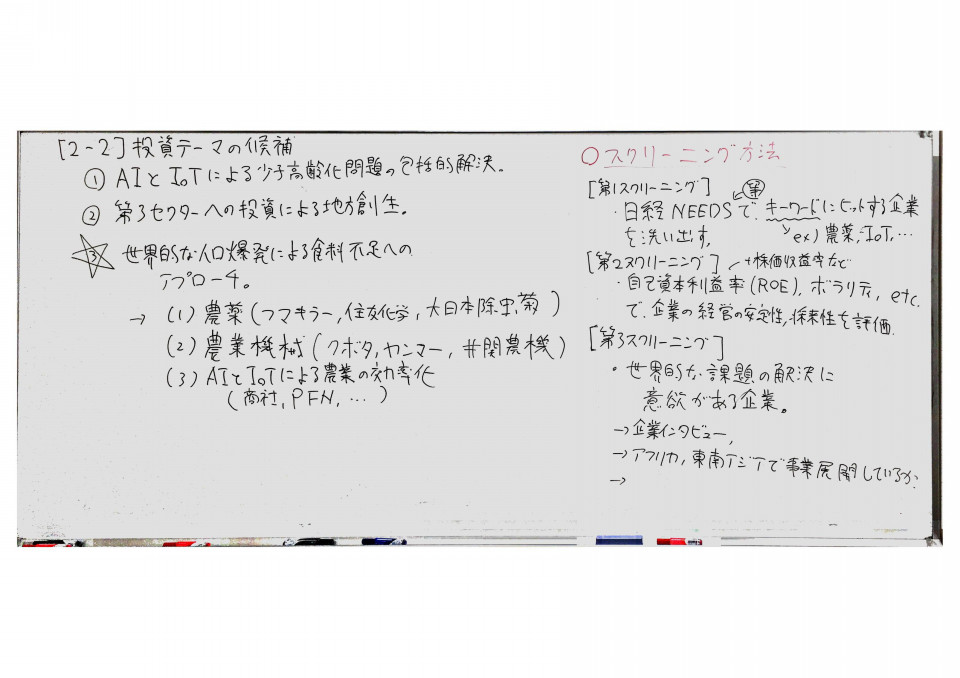 [2-2] 投資テーマの候補
① AIとIoTによる少子高齢化問題の包括的解決。
② 第3セクターへの投資による地方創生。
③ 世界的な人口爆発による食料不足への
アプローチ。
→ (1) 農薬(フマキラー, 住友化学, 大日本除虫菊)
(2) 農業機械(クボタ, ヤンマー, 井関農機)
(3) AIとIoTによる農業の効率化
(商社, PFN, …)
○スクリーニング方法
[第1スクリーニング]
等
・日経NEEDSで、キーワードにヒットする企業
を洗い出す,
ex) 農薬, IoT, …
[第2スクリーニング]
+株価収益率など
・自己資本利益率(ROE), ボラリティ, etc.
で、企業の経営の安定性, 将来性を評価.
[第3スクリーニング]
・世界的な課題の解決に
意欲がある企業。
→企業インタビュー,
→アフリカ, 東南アジアで事業展開しているか.
→